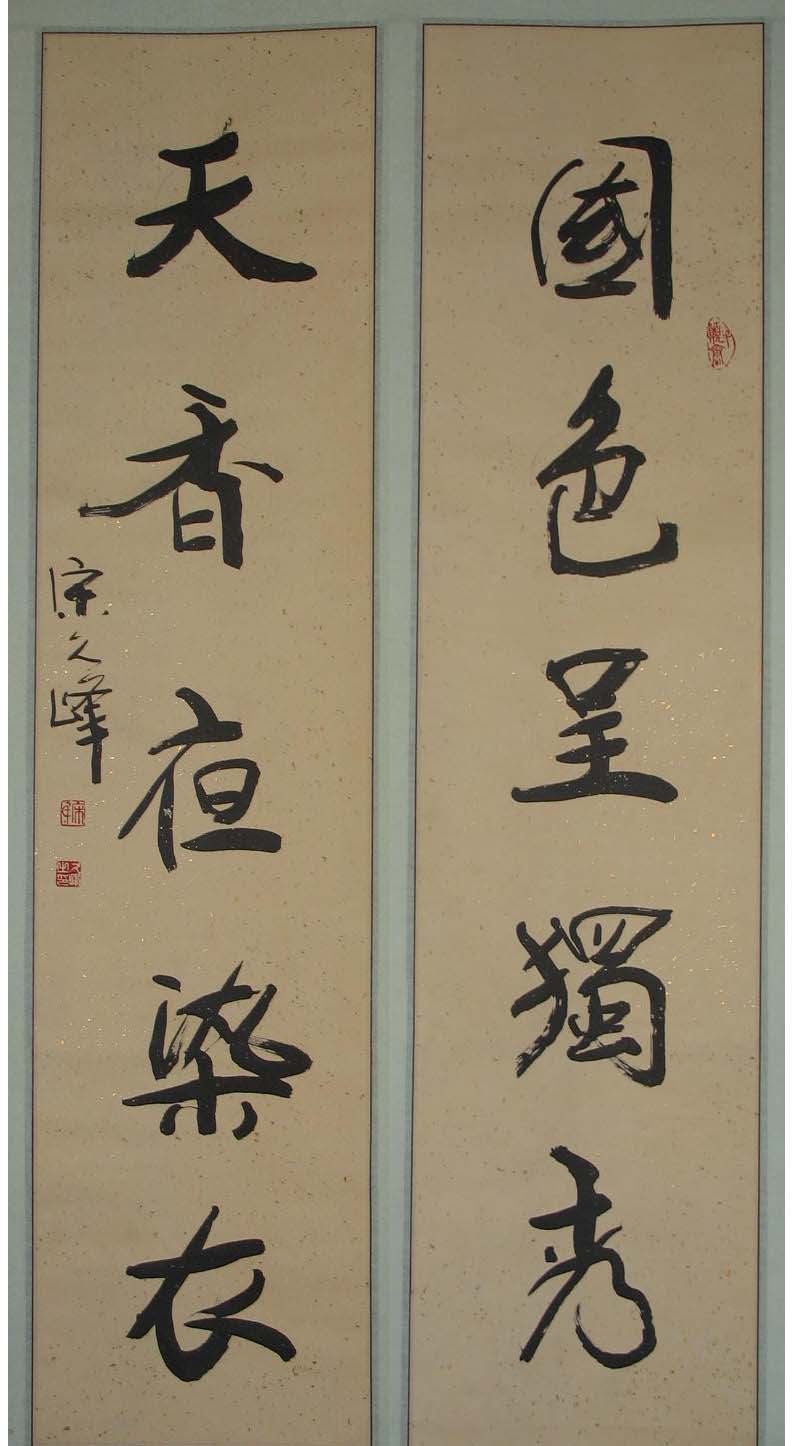 國色呈獨秀
天香夜染衣
宋久峰